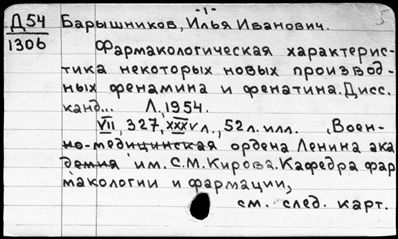 -1-
Д54 Барышников, Илья Иванович.
1306
Фармакологическая характерис-
тика некоторых новых производ-
ных фенамина и фенатина. Дисс.
канд... Л, 1954.
VII, 327, XXXV л., 52 л. илл. Воен-
но-медицинская ордена Ленина ака
демия им. С.М.Кирова. Кафедра фар
макологии и фармации,
см. след. карт.